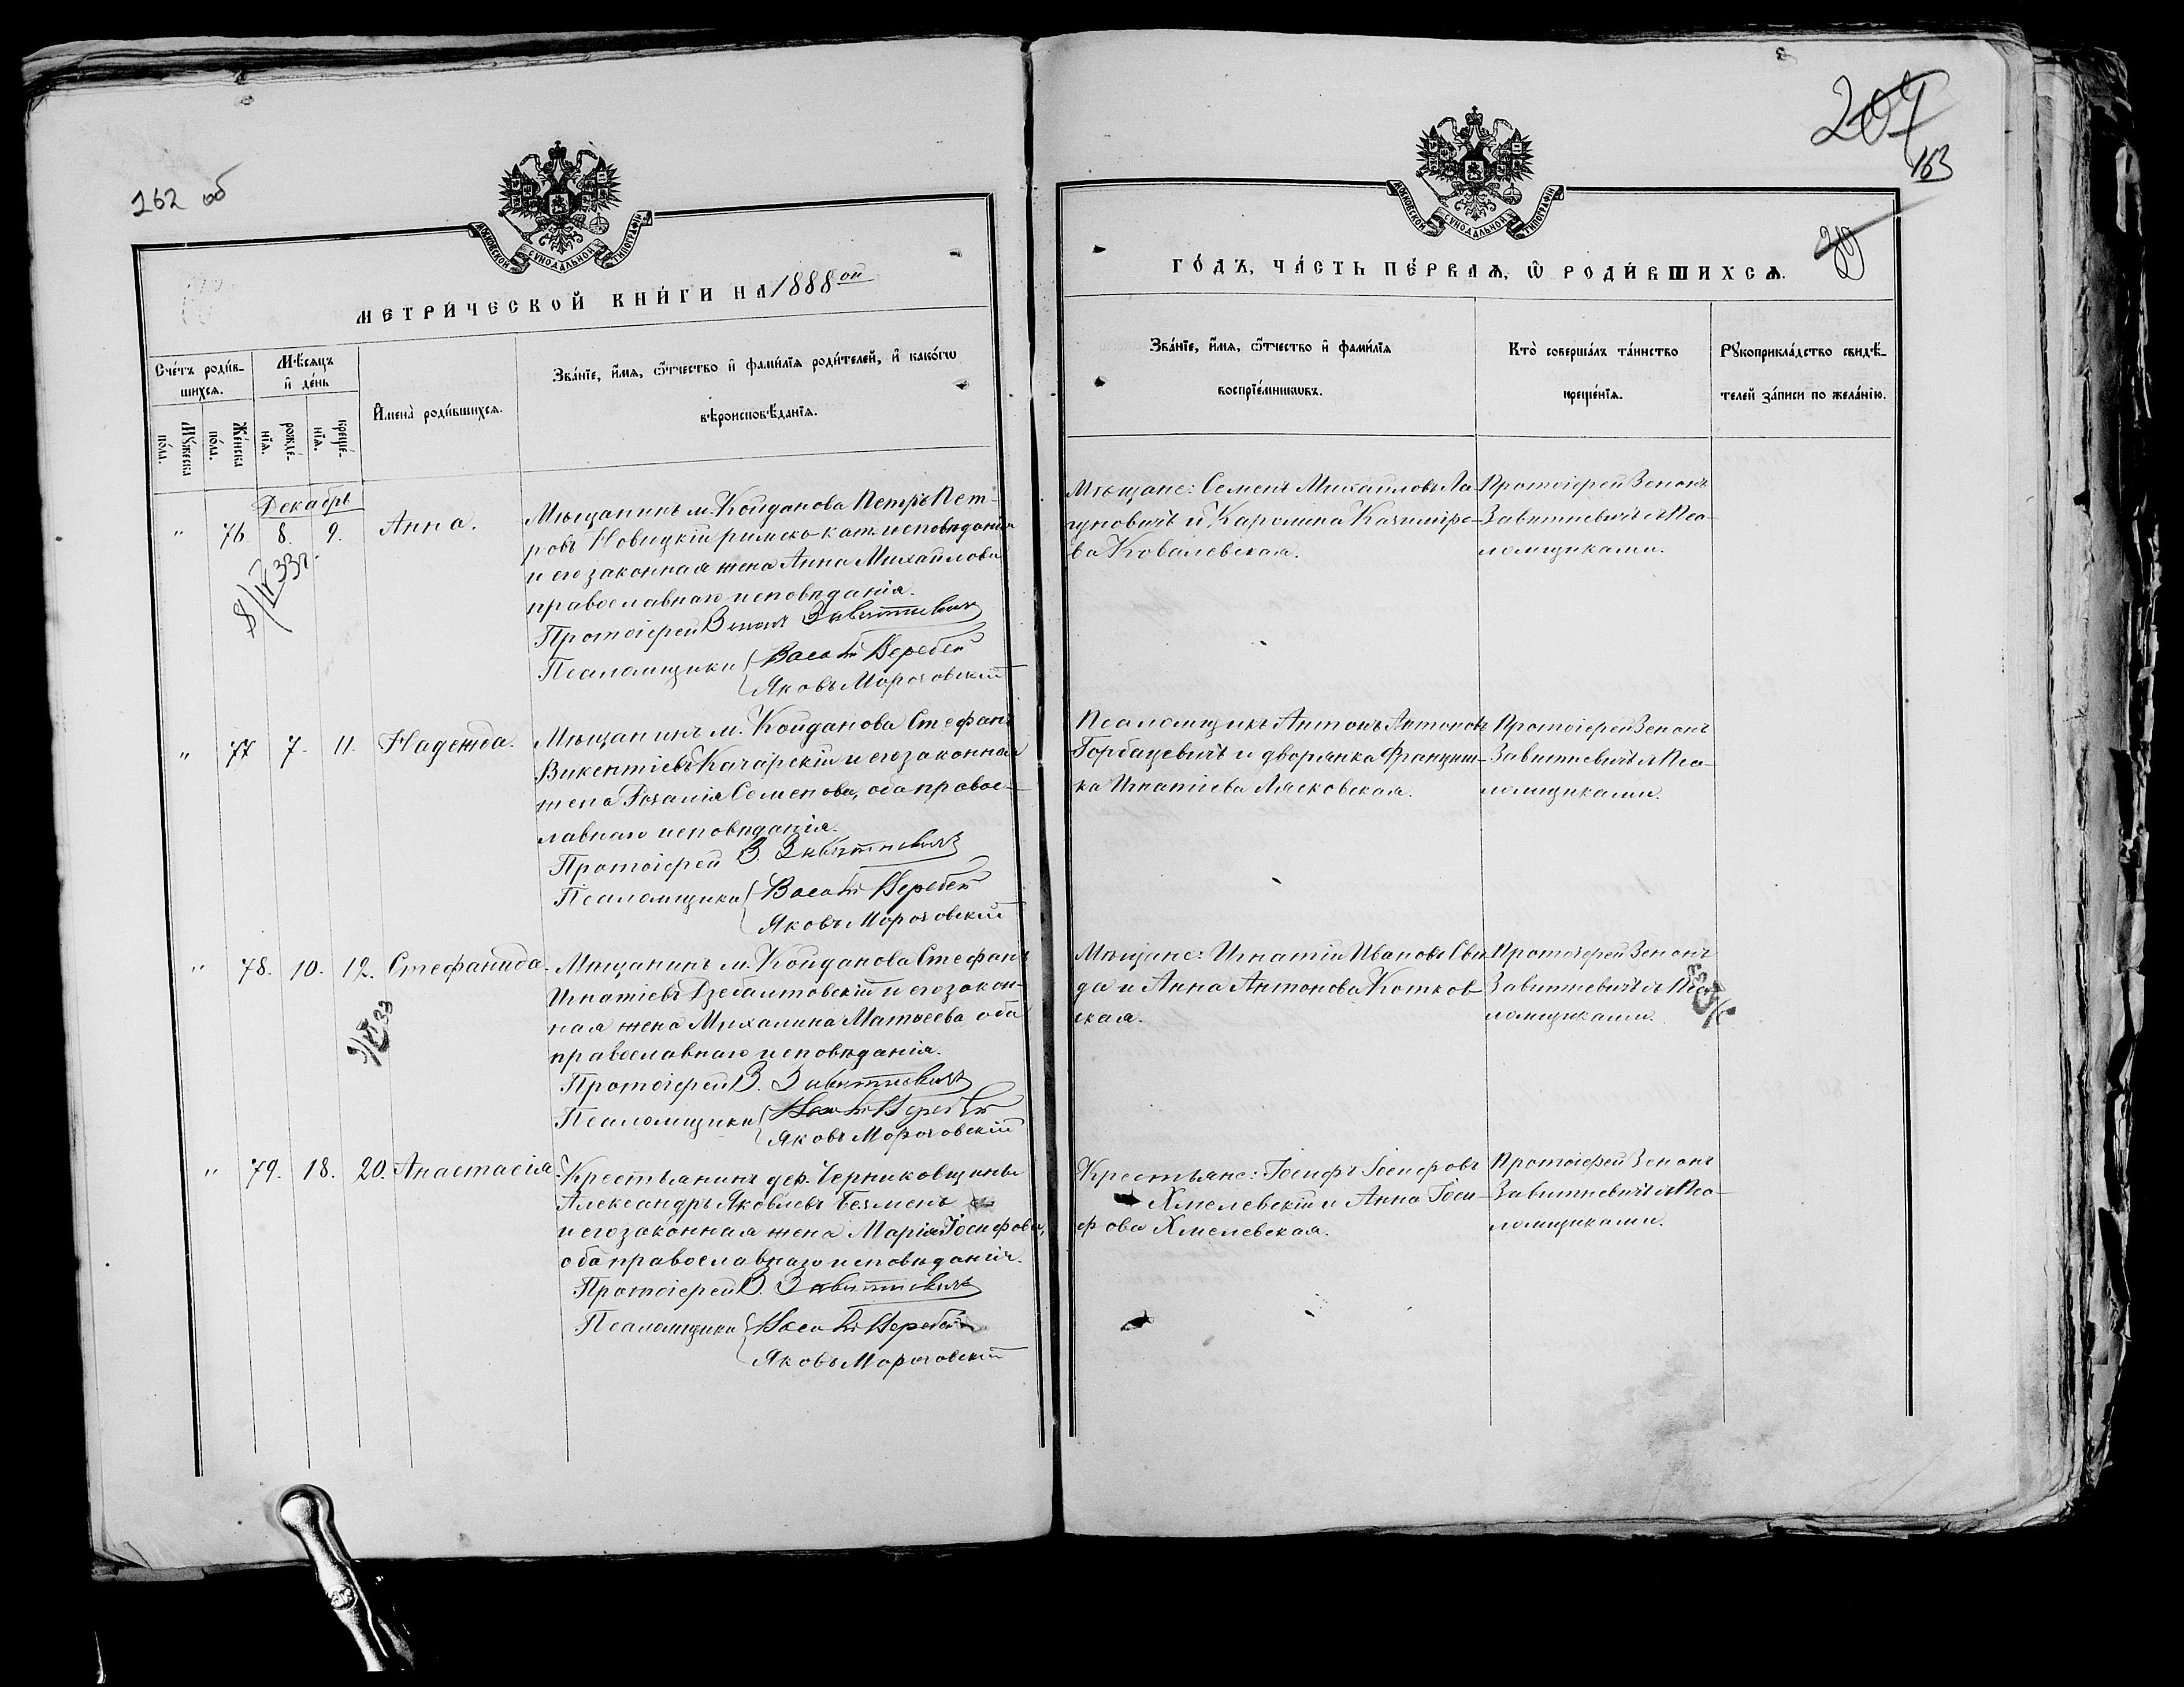 262 об
МОСКОВСКОЙ СУНОДАЛЬНОЙ ТИПОГРАФІИ
МЕТРИ́ЧЕСКОЙ КНИ́ГИ НА 1888ой
Сче́тъ роди́в-
шихся.
Мѣ́сяцъ
и҆ де́нь
Мꙋжеска
по́ла.
Же́нска
по́ла.
рожде́-
нїѧ.
креще́-
нїѧ.
И҆мена̀ роди́вшихсѧ.
Зва́нїе, и҆́мѧ, ѻ҆́тчество и҆ фами́лїѧ роди́телей, и҆ како́гѡ
вѣроисповѣ́данїѧ.
Декабрь
" 76 8. 9. Анна.
Мѣщанинъ м. Койданова Петръ Пет-
ровъ Новицкій римско-кат. исповѣданія
и его законная жена Анна Михайлова
православнаго исповѣданія.
Протоіерей Зенонъ Завитневичъ
Псаломщики Василій Веребей
Яковъ Морозовскій
" 77 7. 11. Надежда.
Мѣщанинъ м. Койданова Стефанъ
Викентіевъ Качарскій и его законная
жена Розалія Семенова, оба правос-
лавнаго исповѣданія.
Протоіерей З. Завитневичъ
Псаломщики Василій Веребей
Яковъ Морозовскій
" 78. 10. 12. Стефанида.
Мѣщанинъ м. Койданова Стефанъ
Игнатіевъ и его закон-
ная жена Михалина Матѳеева оба
православнаго исповѣданія.
Протоіерей З. Завитневичъ
Псаломщики Василій Веребей
Яковъ Морозовскій
" 79. 18. 20. Анастасія.
Крестьянинъ дер. Черниковщины
Александръ Яковлевъ Безменъ
и его законная жена Марія Іосифова,
оба православнаго исповѣданія.
Протоіерей З. Завитневичъ
Псаломщики Василій Веребей
Яковъ Морозовскій
207
163
МОСКОВСКОЙ СУНОДАЛЬНОЙ ТИПОГРАФІИ
ГО́ДЪ, ЧА́СТЬ ПЕ́РВАѦ, Ѡ҆ РОДИ́ВШИХСѦ.
Зва́нїе, и҆́мѧ, ѻ҆́тчество и҆ фами́лїѧ
воспрїе́мникѡвъ.
Кто̀ соверша́лъ та́инство
креще́нїѧ.
Рꙋкоприкла́дство свидѣ́-
телей за́писи по жела́нїю.
Мѣщане: Семенъ Михайловъ Ла-
гуновичъ и Каролина Казимиро-
ва Ковалевская.
Протоіерей Зенонъ
Завитневичъ съ Пса-
ломщиками.
Псаломщикъ Антонъ Антоновъ
Горбацевичъ и дворянка Францишка-
ка Игнатіева Лясковская.
Протоіерей Зенонъ
Завитневичъ съ Пса-
ломщиками.
Мѣщане: Игнатій Ивановъ Сви-
да и Анна Антонова Котков-
ская.
Протоіерей Зенонъ
Завитневичъ съ Пса-
ломщиками.
Крестьяне: Іосифъ Іосифовъ
Хмелевскій и Анна Іоси-
фова Хмелевская.
Протоіерей Зенонъ
Завитневичъ съ Пса-
ломщиками.